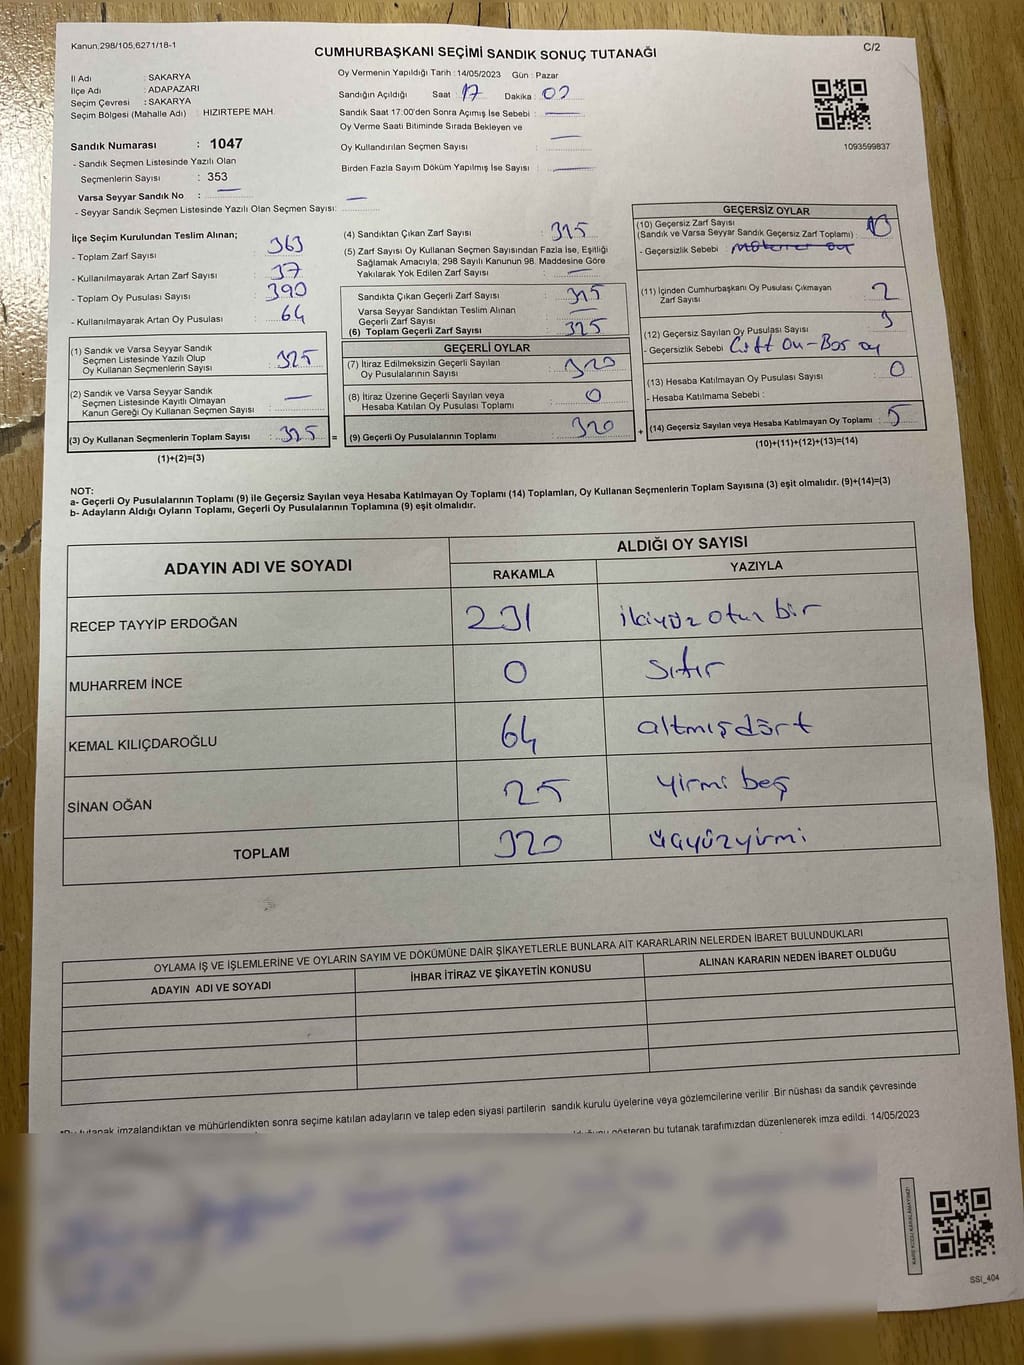 Kanun,298/105,6271/18-1
C/2
CUMHURBAŞKANI SEÇİMİ SANDIK SONUÇ TUTANAĞI
İl Adı : SAKARYA
İlçe Adı : ADAPAZARI
Seçim Çevresi : SAKARYA
Seçim Bölgesi (Mahalle Adı) : HIZIRTEPE MAH.
Sandık Numarası : 1047
- Sandık Seçmen Listesinde Yazılı Olan
Seçmenlerin Sayısı : 353
Varsa Seyyar Sandık No : —
- Seyyar Sandık Seçmen Listesinde Yazılı Olan Seçmen Sayısı: —
Oy Vermenin Yapıldığı Tarih : 14/05/2023 Gün : Pazar
Sandığın Açıldığı Saat : 17 Dakika : 02
Sandık Saat 17:00'den Sonra Açımış İse Sebebi : —
Oy Verme Saati Bitiminde Sırada Bekleyen ve
Oy Kullandırılan Seçmen Sayısı : —
Birden Fazla Sayım Döküm Yapılmış İse Sayısı : —
1093599837
İlçe Seçim Kurulundan Teslim Alınan;
- Toplam Zarf Sayısı : 363
- Kullanılmayarak Artan Zarf Sayısı : 37
- Toplam Oy Pusulası Sayısı : 390
- Kullanılmayarak Artan Oy Pusulası : 64
(1) Sandık ve Varsa Seyyar Sandık
Seçmen Listesinde Yazılı Olup
Oy Kullanan Seçmenlerin Sayısı : 325
(2) Sandık ve Varsa Seyyar Sandık
Seçmen Listesinde Kayıtlı Olmayan
Kanun Gereği Oy Kullanan Seçmen Sayısı : —
(3) Oy Kullanan Seçmenlerin Toplam Sayısı : 325 =
(1)+(2)=(3)
(4) Sandıktan Çıkan Zarf Sayısı : 325
(5) Zarf Sayısı Oy Kullanan Seçmen Sayısından Fazla İse, Eşitliği
Sağlamak Amacıyla; 298 Sayılı Kanunun 98. Maddesine Göre
Yakılarak Yok Edilen Zarf Sayısı : —
Sandıkta Çıkan Geçerli Zarf Sayısı : 325
Varsa Seyyar Sandıktan Teslim Alınan
Geçerli Zarf Sayısı : —
(6) Toplam Geçerli Zarf Sayısı : 325
GEÇERLİ OYLAR
(7) İtiraz Edilmeksizin Geçerli Sayılan
Oy Pusulalarının Sayısı : 320
(8) İtiraz Üzerine Geçerli Sayılan veya
Hesaba Katılan Oy Pusulası Toplamı : 0
(9) Geçerli Oy Pusulalarının Toplamı : 320 +
GEÇERSİZ OYLAR
(10) Geçersiz Zarf Sayısı
(Sandık ve Varsa Seyyar Sandık Geçersiz Zarf Toplamı) :
- Geçersizlik Sebebi :
(11) İçinden Cumhurbaşkanı Oy Pusulası Çıkmayan
Zarf Sayısı : 2
(12) Geçersiz Sayılan Oy Pusulası Sayısı : 3
- Geçersizlik Sebebi : Çift oy-Boş oy
(13) Hesaba Katılmayan Oy Pusulası Sayısı : 0
- Hesaba Katılmama Sebebi :
(14) Geçersiz Sayılan veya Hesaba Katılmayan Oy Toplamı : 5
(10)+(11)+(12)+(13)=(14)
NOT:
a- Geçerli Oy Pusulalarının Toplamı (9) ile Geçersiz Sayılan veya Hesaba Katılmayan Oy Toplamı (14) Toplamları, Oy Kullanan Seçmenlerin Toplam Sayısına (3) eşit olmalıdır. (9)+(14)=(3)
b- Adayların Aldığı Oyların Toplamı, Geçerli Oy Pusulalarının Toplamına (9) eşit olmalıdır.
ADAYIN ADI VE SOYADI
ALDIĞI OY SAYISI
RAKAMLA YAZIYLA
RECEP TAYYİP ERDOĞAN 231 ikiyüz otuz bir
MUHARREM İNCE 0 sıfır
KEMAL KILIÇDAROĞLU 64 altmışdört
SİNAN OĞAN 25 yirmi beş
TOPLAM 320 üçyüzyirmi
OYLAMA İŞ VE İŞLEMLERİNE VE OYLARIN SAYIM VE DÖKÜMÜNE DAİR ŞİKAYETLERLE BUNLARA AİT KARARLARIN NELERDEN İBARET BULUNDUKLARI
ADAYIN ADI VE SOYADI İHBAR İTİRAZ VE ŞİKAYETİN KONUSU ALINAN KARARIN NEDEN İBARET OLDUĞU
*Bu tutanak imzalandıktan ve mühürlendikten sonra seçime katılan adayların ve talep eden siyasi partilerin sandık kurulu üyelerine veya gözlemcilerine verilir .Bir nüshası da sandık çevresinde
gösteren bu tutanak tarafımızdan düzenlenerek imza edildi. 14/05/2023
KARE KODU KARALAMAYINIZ!
SSI_404